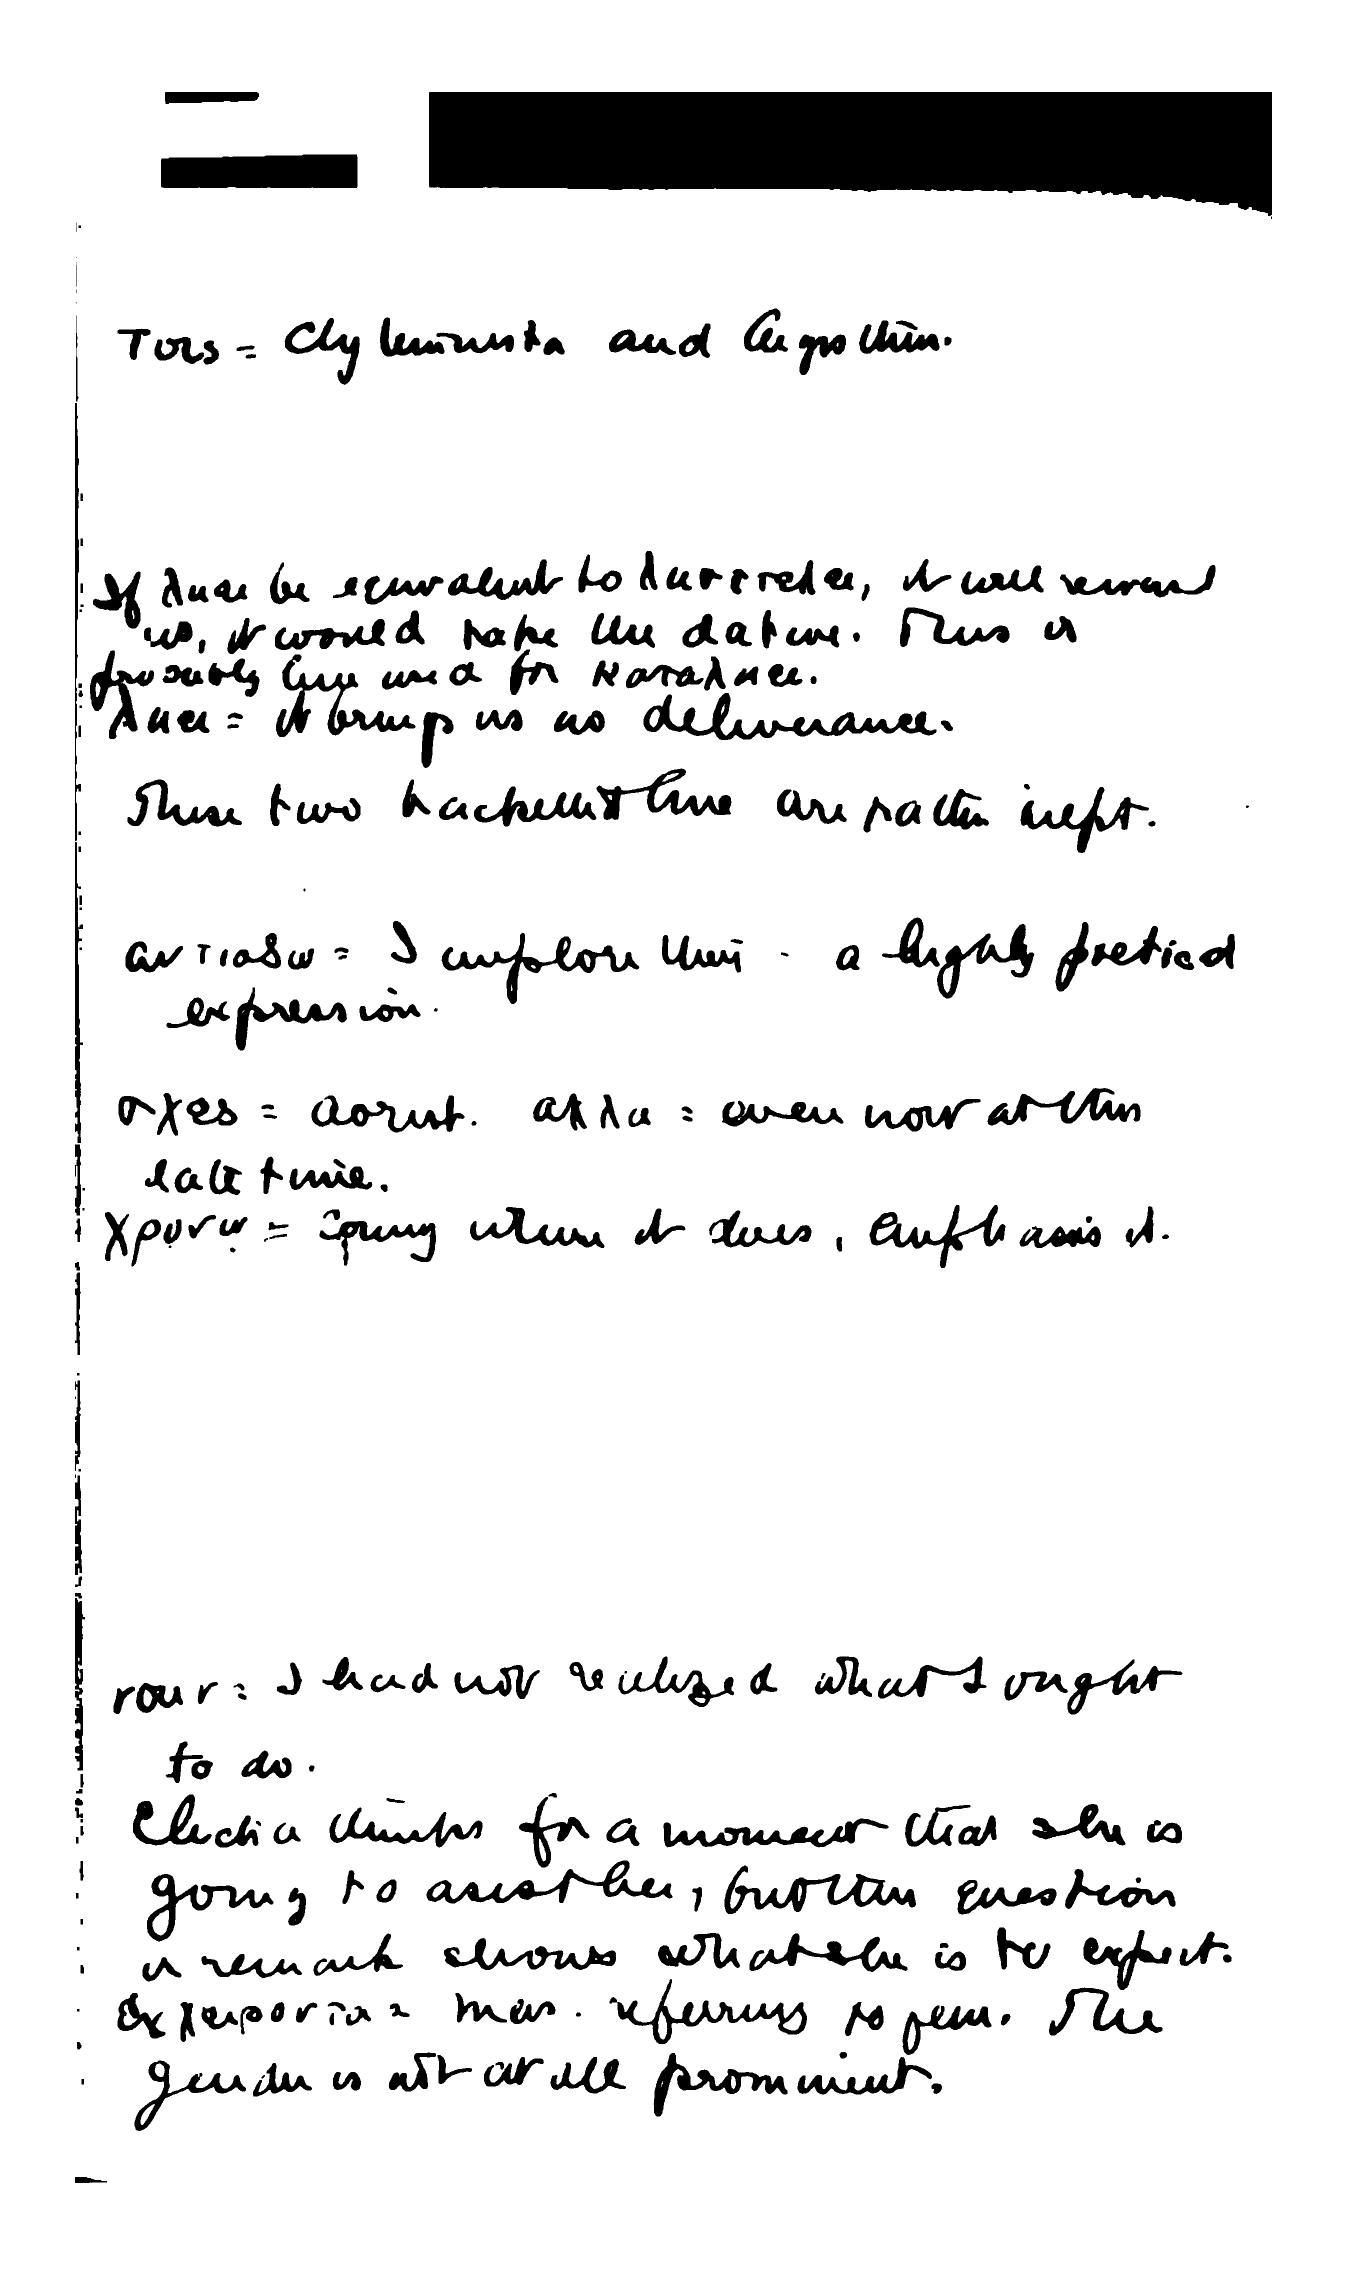 τοις = Clytemnestra and Aegisthus.
If λυει be equivalent to λυσιτελει, it will reward
us, it would take the dative. This is
probably here used for καταλυει.
λυει = it brings us no deliverance.
These two bracketed line are rather inept.
αντιαζω = I implore thee - a highly poetical
expression.
σχες = aorist. αλλα = even now at this
late time.
χρονω = coming where it does, emphasis it.
νουν = I had not realized what I ought
to do.
Electra thinks for a moment that she is
going to assist her, but then question
or remark shows what she is to expect.
= mas. referring to fem. The
gender is not at all prominent.